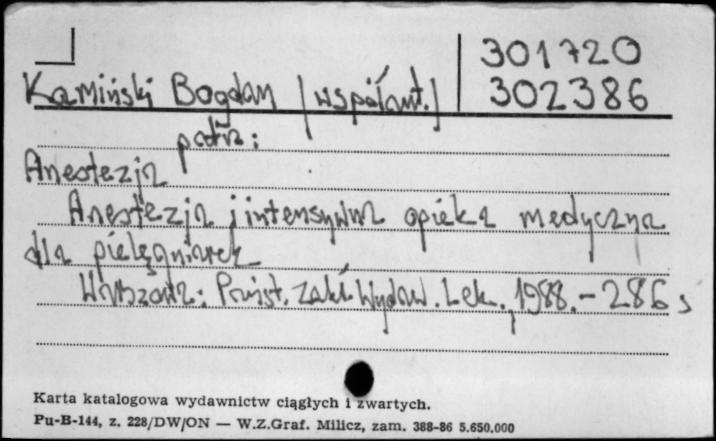 301720
Kamiński Bogdan /współaut./ 302386
patrz:
Anestezja
Anestezja i intensywna opieka medyczna
dla pielęgniarek
Warszawa: Państ. Zakł. Wydaw. Lek., 1988. - 286 s
Karta katalogowa wydawnictw ciągłych i zwartych.
Pu-B-144, z. 228/DW/ON — W.Z.Graf. Milicz, zam. 388-86 5.650.000